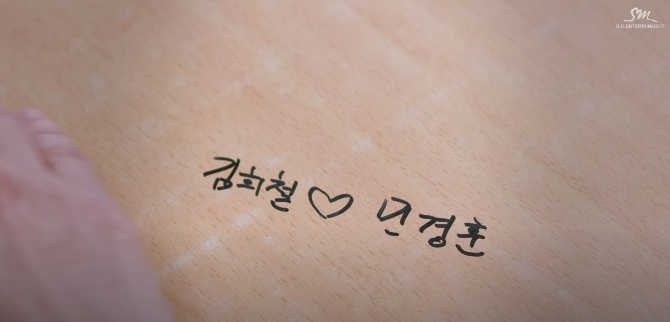 SM
S.M.ENTERTAINMENT
김희철 ♡ 민경훈